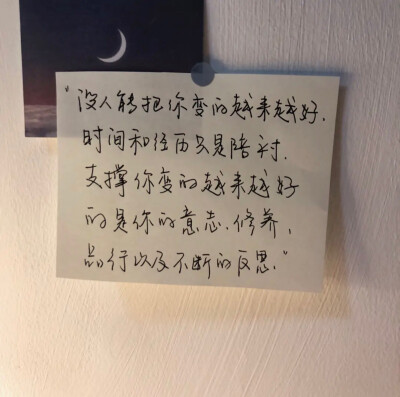 "没人能把你变的越来越好.
时间和经历只是陪衬.
支撑你变的越来越好
的是你的意志、修养、
品行以及不断的反思."